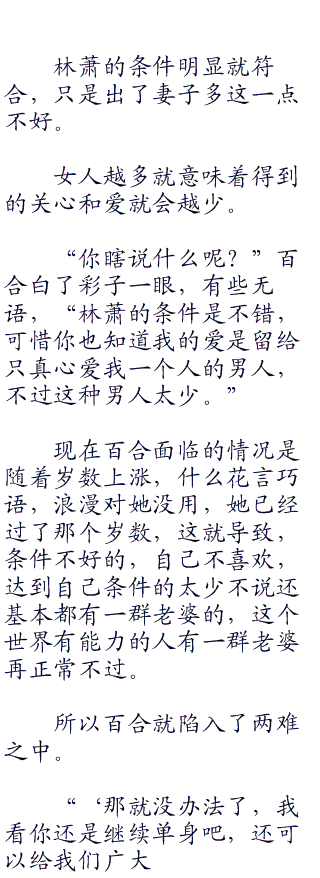 林萧的条件明显就符
合，只是出了妻子多这一点
不好。
女人越多就意味着得到
的关心和爱就会越少。
“你瞎说什么呢？”百
合白了彩子一眼，有些无
语，“林萧的条件是不错，
可惜你也知道我的爱是留给
只真心爱我一个人的男人，
不过这种男人太少。”
现在百合面临的情况是
随着岁数上涨，什么花言巧
语，浪漫对她没用，她已经
过了那个岁数，这就导致，
条件不好的，自己不喜欢，
达到自己条件的太少不说还
基本都有一群老婆的，这个
世界有能力的人有一群老婆
再正常不过。
所以百合就陷入了两难
之中。
“‘那就没办法了，我
看你还是继续单身吧，还可
以给我们广大